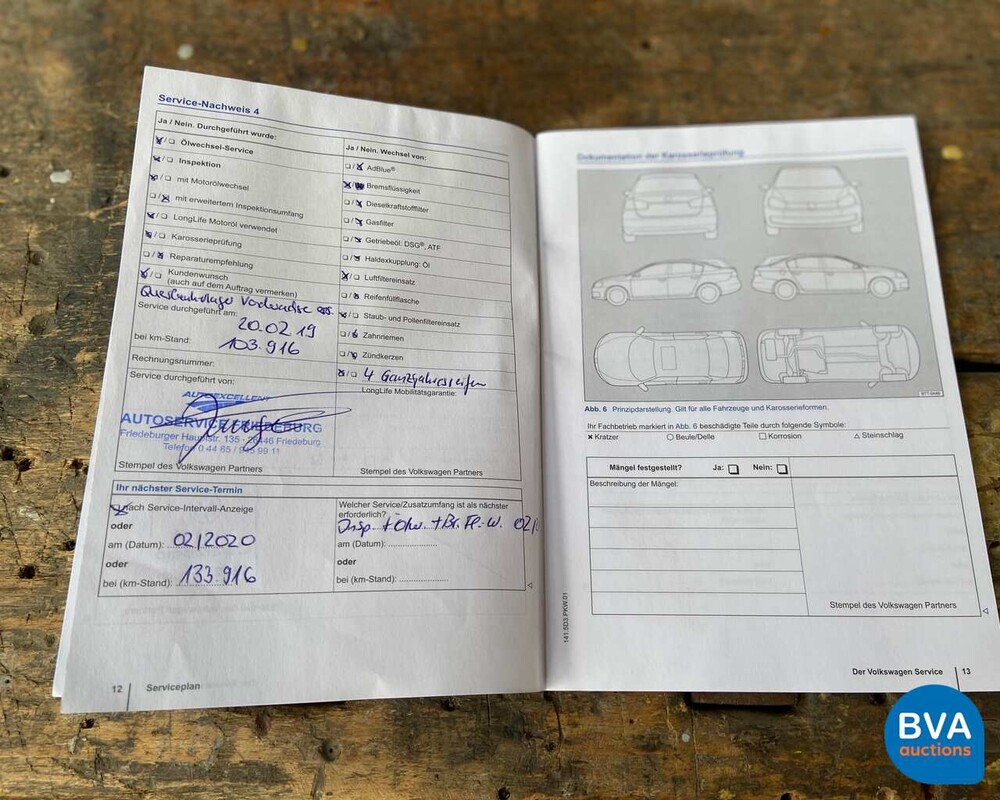 Service-Nachweis 4
Ja / Nein. Durchgeführt wurde:
Ölwechsel-Service
Inspektion
mit Motorölwechsel
mit erweitertem Inspektionsumfang
LongLife Motoröl verwendet
Karosserieprüfung
Reparaturempfehlung
Kundenwunsch
(auch auf dem Auftrag vermerken)
Querlenkerlager Vorderachse ers.
Service durchgeführt am:
20.02.19
bei km-Stand: 103.916
Rechnungsnummer:
Service durchgeführt von:
AUTOEXCELLENT
AUTOSERVICE FRIEDEBURG
Friedeburger Hauptstr. 135 - 26446 Friedeburg
Telefon 0 44 65 / 945 99 11
Stempel des Volkswagen Partners
Ja / Nein. Wechsel von:
AdBlue®
Bremsflüssigkeit
Dieselkraftstofffilter
Gasfilter
Getriebeöl: DSG®, ATF
Haldexkupplung: Öl
Luftfiltereinsatz
Reifenfüllflasche
Staub- und Pollenfiltereinsatz
Zahnriemen
Zündkerzen
4 Ganzjahresreifen
LongLife Mobilitätsgarantie:
Stempel des Volkswagen Partners
Ihr nächster Service-Termin
nach Service-Intervall-Anzeige
oder
am (Datum): 02/2020
oder
bei (km-Stand): 133.916
Welcher Service/Zusatzumfang ist als nächster
erforderlich?
Insp. + Ölw. + Br. Fl. W. 02/
am (Datum):
oder
bei (km-Stand):
12 Serviceplan
Dokumentation der Karosserieprüfung
Abb. 6 Prinzipdarstellung. Gilt für alle Fahrzeuge und Karosserieformen.
Ihr Fachbetrieb markiert in Abb. 6 beschädigte Teile durch folgende Symbole:
Kratzer Beule/Delle Korrosion Steinschlag
Mängel festgestellt? Ja: Nein:
Beschreibung der Mängel:
Stempel des Volkswagen Partners
141.5D3.PKW.01
Der Volkswagen Service 13
BVA
auctions